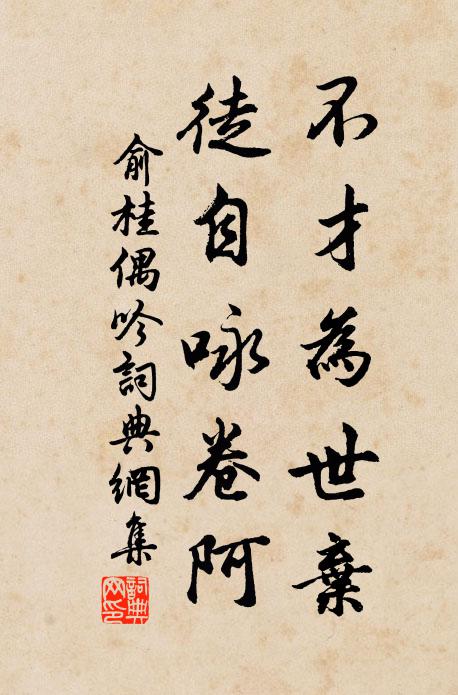 不才為世棄
徒自咏卷阿
俞桂偶吟詞典網集
詞典
网印